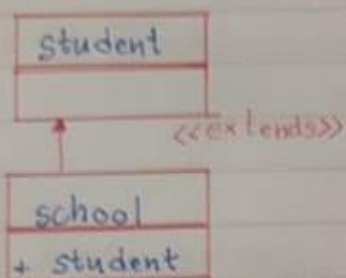 student
<<extends>>
school
+ student